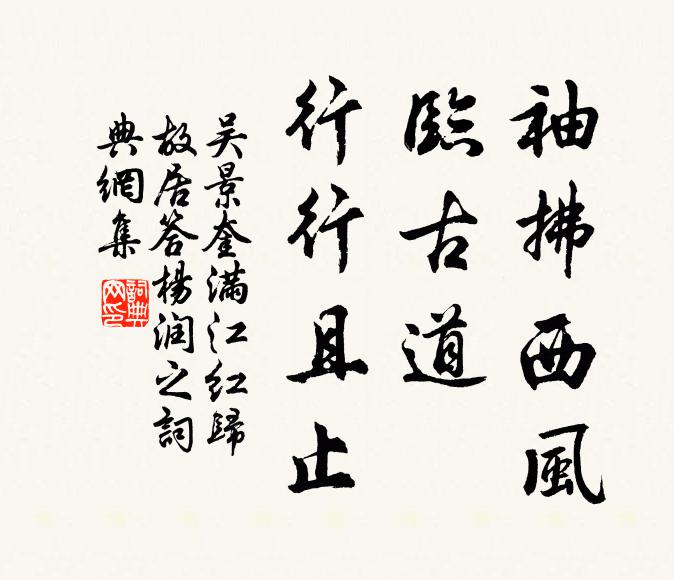 袖拂西風
臨古道
行行且止
吴景奎滿江紅歸
故居答楊润之詞
典網集
詞典網印